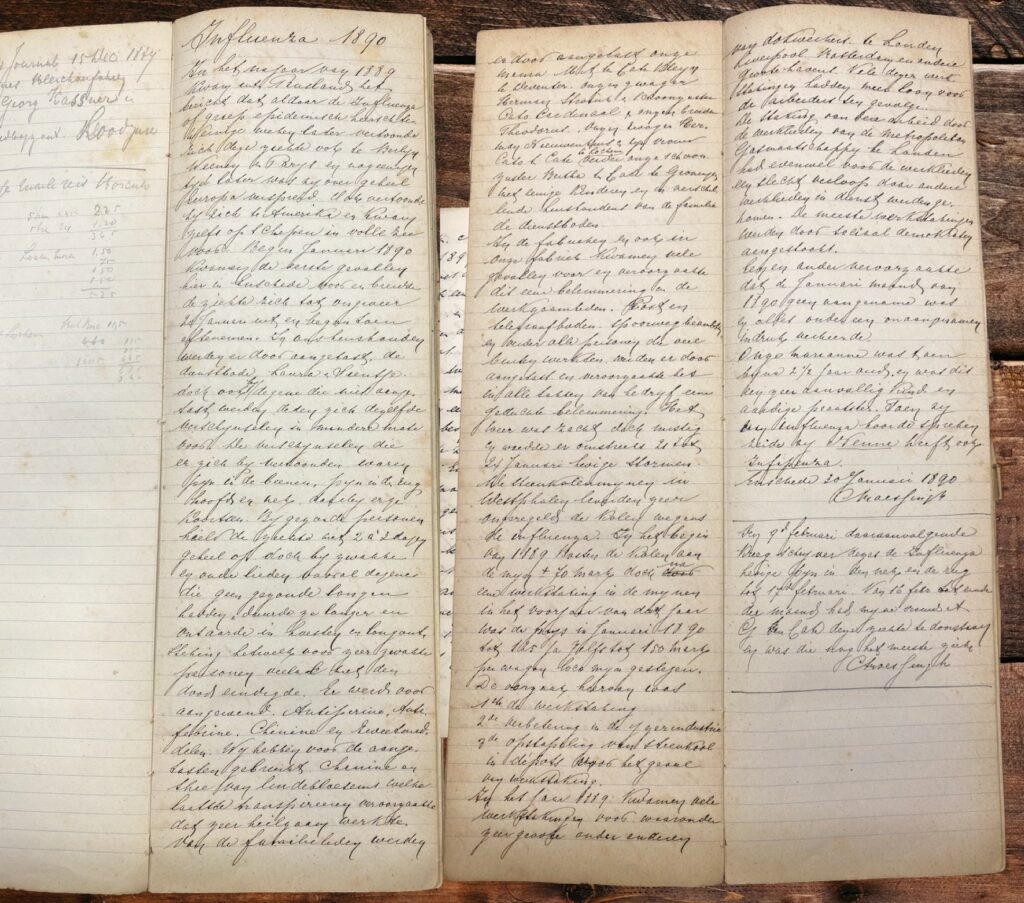 Journal 15 Dec 1889
Georg
Influenza 1890
In het najaar van 1889
kwam uit Rusland het
bericht dat aldaar de Influenza
of griep epidemisch heerschte
weinige weken later vertoonde
zich deze ziekte ook te Berlijn
Weenen en Parijs en nog eenigen
tijd later was zij over geheel
europa verspreid. Ook vertoonde
zij zich in Amerika en kwam
zelfs op Schepen in volle zee
voor. Begin Januari 1890
kwamen de eerste gevallen
hier in Enschede voor en breidde
de ziekte zich tot ongeveer
20 Januari uit en begon toen
aftenemen. In ons huishouden
werden er door aangetast, de
dienstbode, Laura & Sientje
doch ook degene die niet aange-
tast werden deden zich dezelfde
verschijnselen in mindere mate
voor. De verschijnselen die
er zich bij vertoonden waren
Pijn in de beenen, pijn in de rug
hoofd en nek. dadelijk erge
Koortsen. Bij gezonde personen
hield de ziekte uit 2 a 3 dagen
geheel op doch bij zwakke
en oude lieden vooral degenen
die geen gezonde longen
hadden, duurde ze langer en
ontaarde in hoesten en longont-
steking hetwelk voor zeer zwakke
personen veelal met den
dood eindigde. Er werd voor
aangewend. Antiperine, Anti-
febrine, Chinine en Zweetmid-
delen. Wij hebben voor de aange-
tasten gebruikt Chinine en
thee van lindebloesem welke
laatste transpireeren veroorzaakte
dat zeer heilzaam werkte.
Van de familieleden werden
er door aangetast onze
mama Mut ten Cate Bleyn
te Deventer. onzen zwager
Herman Stroink & Broomeester
Cato Cardinaal & onzen broeder
Theodorus. Onzen zwager Her-
man Nieuwenhuis & zijn vrouw
Cato t Cate te Lochem verder onze schoon-
zuster Bertha t Cate te Groningen
met eenige Kinderen en in verschil-
lende huishouden van de familie
de dienstboden.
In de fabrieken en ook in
onze fabriek kwamen vele
gevallen voor en veroorzaakte
dit een belemmering in de
werkzaamheden. Post en
telegraafboden. spoorwegbeambten
en verder alle personen die veel
buiten werkten, werden er door
aangetast en veroorzaakte het
in alle takken van bedrijf een
gedachte belemmering. Het
weer was zacht doch mistig
en woedde er omstreeks 20 tot
24 Januari hevige Stormen.
De steenkolenmijnen in
Westphalen leverden zeer
onregeld de Kolen wegens
de influenza. In het begin
van 1889 kosten de Kolen aan
de mijn ± 70 mark doch na
een werkstaking in de mijnen
in het voorjaar van dat jaar
was de prijs in Januari 1890
tot 125 ja zelfs tot 150 mark
per wagon loco mijn gestegen.
De oorzaak hiervan was
1ste de werkstaking
2de verbetering in de yzerindustrie
3de opstapeling van steenkool
in depots voor het geval
van werkstaking.
In het Jaar 1889 kwamen vele
werkstakingen voor waaronder
zeer groote onder anderen
van dokwerkers te Londen
Liverpool Rotterdam en andere
groote havens. Vele dezer werk
stakingen hadden meer loon voor
de arbeiders ten gevolge.
De staking van den arbeid door
de werklieden van de Metropolitan
Gasmaatschappy te Londen
had evenwel voor de werklieden
een slecht verloop daar andere
werklieden in dienst werden ge-
nomen. De meeste werkstakingen
werden door sociaal demokraten
aangestookt.
Een en ander veroorzaakte
dat de Januari maand van
1890 geen aangename was
en alles onder een onaangenamen
indruk verkeerde.
Onze Marianne was toen
bijna 2 1/2 jaar oud, en was dit
een zeer aanvallig Kind en
aardige praatster. Toen zij
van influenza hoorde spreken
zeide zij Nenne heeft ook
Infuenza.
Enschede 30 Januari 1890
Den 9d februari daaraanvolgende
kreeg schrijver dezes de Influenza
hevige pijn in den nek en de rug
tot 15d februari. Van 16 febr tot einde
der maand had mijne vrouw A
CJ ten Cate deze ziekte te doorstaan
zij was die nog het meeste ziek